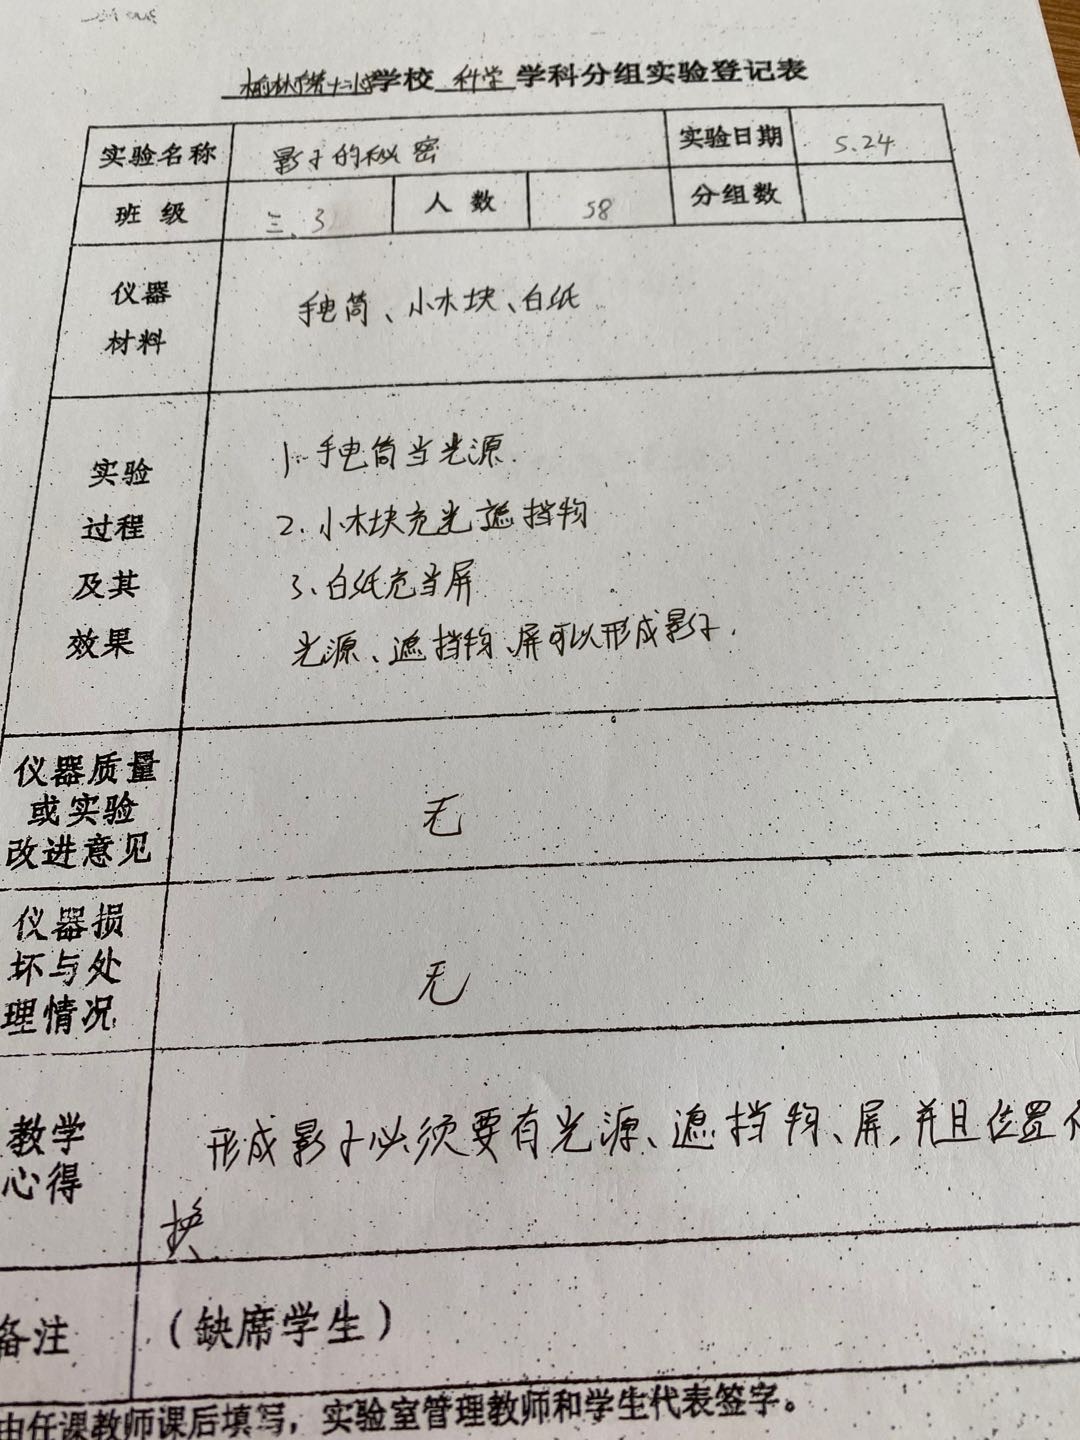 榆林市第十二小学校 科学 学科分组实验登记表
实验名称 影子的秘密 实验日期 5.24
班级 三、3 人数 58 分组数
仪器 材料 手电筒、小木块、白纸
实验 过程 及其 效果
1. 手电筒当光源.
2. 小木块充光遮挡物
3、白纸充当屏
光源、遮挡物、屏可以形成影子.
仪器质量
或实验
改进意见
无
仪器损
坏与处
理情况
无
教学
心得
形成影子必须要有光源、遮挡物、屏,并且位置
换
备注 (缺席学生)
由任课教师课后填写，实验室管理教师和学生代表签字。